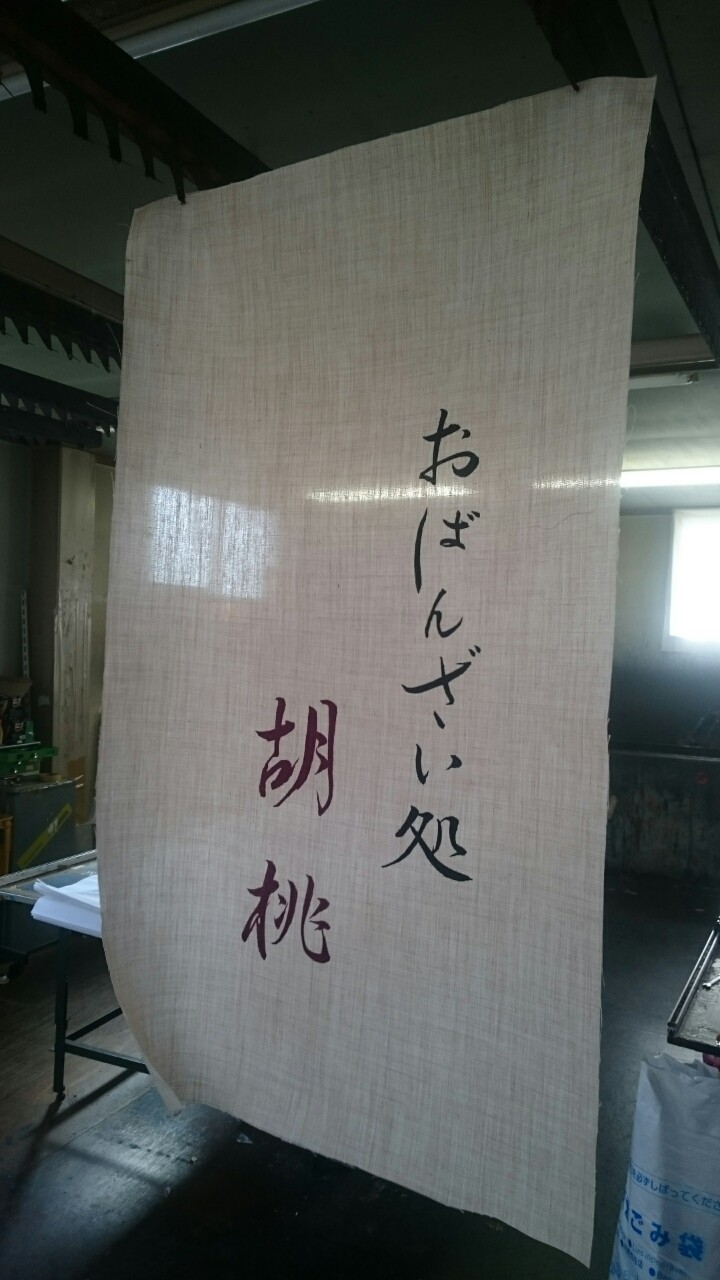 おばんざい処
胡桃
必ずしばってくださ
ごみ袋